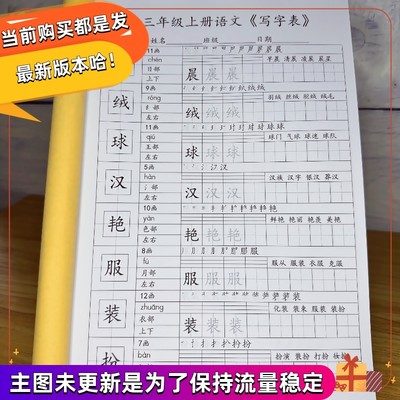 当前购买都是发
最新版本哈！
三年级上册语文《写字表》
姓名 班级 日期
11画
chén
日部
上下
晨 晨 晨
早晨 清晨 凌晨 晨星
绒
9画
róng
纟部
左右
绒 绒 绒
羽绒 丝绒 鹅绒 绒毛
球
11画
qiú
左右
球 球 球
球门 气球 球迷 球队
汉
5画
hàn
氵部
左右
汉 汉 汉
汉族 汉字 银汉 莽汉
艳
10画
yàn
色部
左右
艳 艳 艳
鲜艳 艳丽 艳羡 美艳
服
8画
fú
月部
左右
服 服 服
服从 服装 衣服 克服
装
12画
zhuāng
衣部
上下
装 装 装
化装 装束 服装 装扮
扮
7画
bàn
扮 扮 扮
扮演 装扮 打扮
主图未更新是为了保持流量稳定